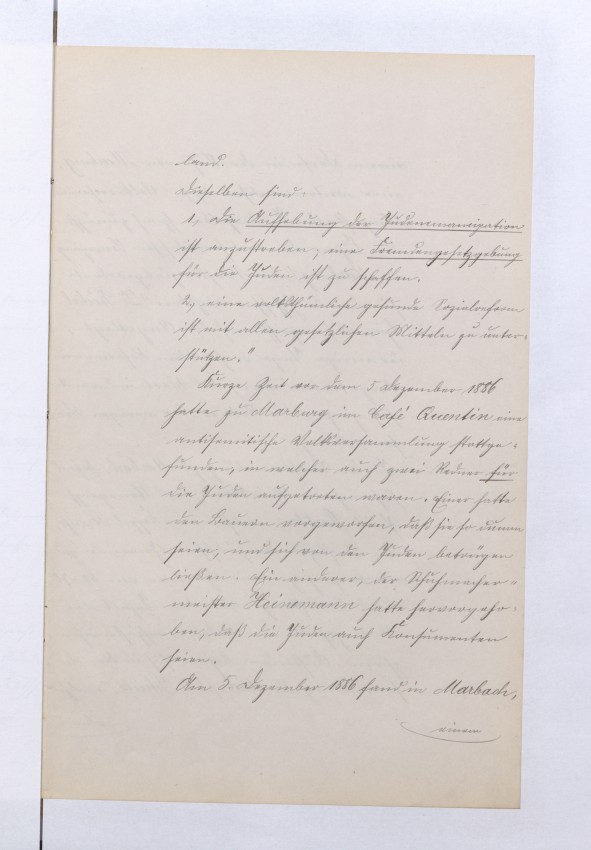 land.
Dieselben sind:
1, Die Aufhebung der Judenemancipation
ist anzustreben; eine Fremdengesetzgebung
für die Juden ist zu schaffen.
2, eine volksthümliche gesunde Sozialreform
ist mit allen gesetzlichen Mitteln zu unter-
stützen."
Kurze Zeit vor dem 5 Dezember 1886
hatte zu Marburg im Café Quentin eine
antisemitische Volksversammlung stattge-
funden, in welcher auch zwei Redner für
die Juden aufgetreten waren. Einer hatte
den Bauern vorgeworfen, daß sie so dumm
seien, und sich von den Juden betrügen
ließen. Ein anderer, der Schuhmacher-
meister Heinemann hatte hervorgeho-
ben, daß die Juden auch Konsumenten
seien.
Am 5. Dezember 1886 fand in Marbach,
einem